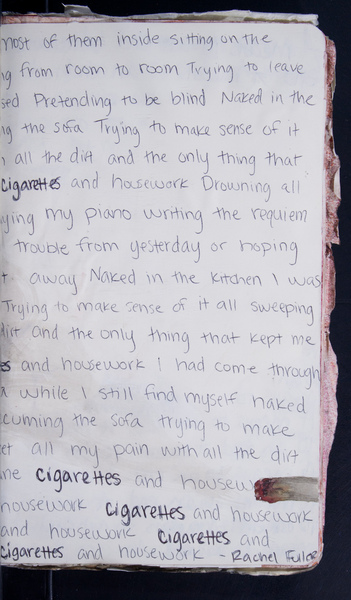 most of them inside sitting on the
from room to room Trying to leave
Pretending to be blind Naked in the
the sofa Trying to make sense of it
all the dirt and the only thing that
Cigarettes and housework Drowning all
my piano writing the requiem
trouble from yesterday or hoping
away Naked in the kitchen I was
Trying to make sense of it all sweeping
dirt and the only thing that kept me
and housework I had come through
a while I still find myself naked
the sofa trying to make
all my pain with all the dirt
Cigarettes and housew
housework Cigarettes and housework
and housework Cigarettes and
Cigarettes and housework - Rachel Fuller